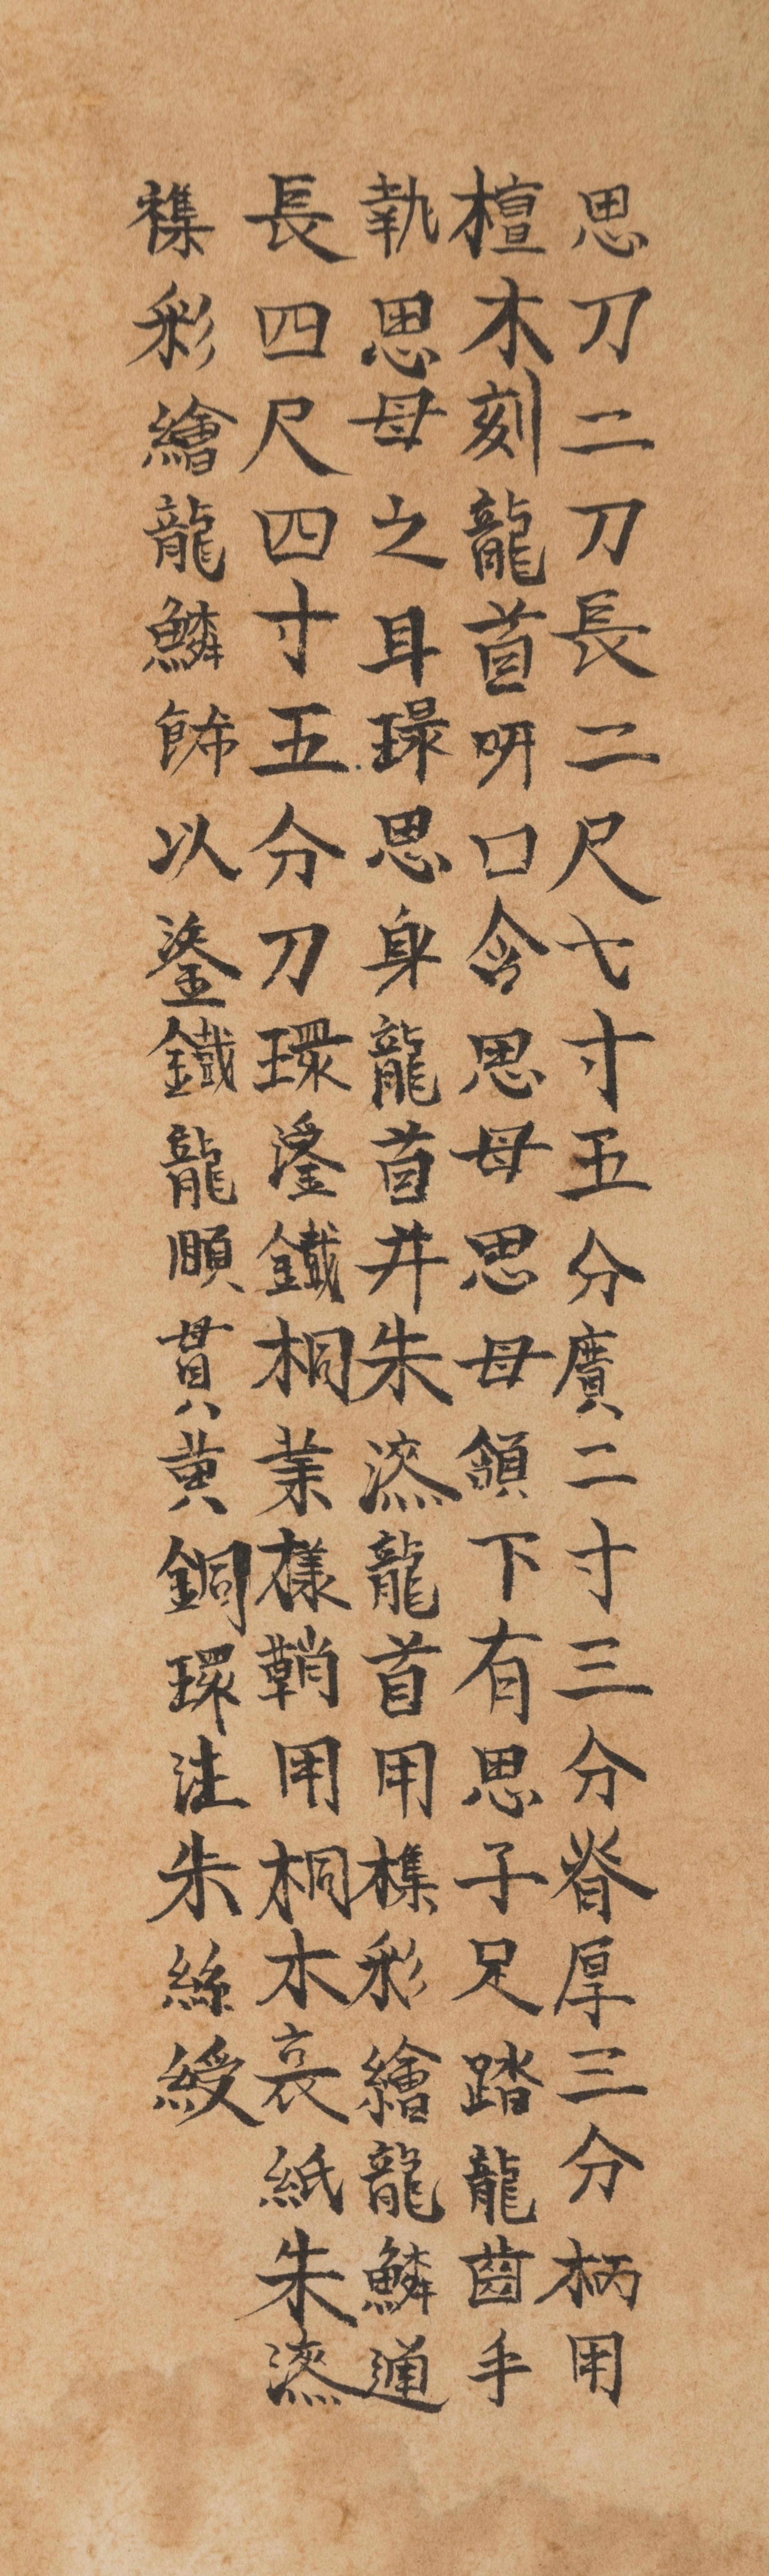 思刀二刀長二尺七寸五分廣二寸三分脊厚三分柄用
檀木刻龍首呀口含思母思母頷下有思子足踏龍齒手
執思母之耳環思身龍首并朱漆龍首用襍彩繪龍鱗通
長四尺四寸五分刀環鎏鐵桐葉樣鞘用桐木裹紙朱漆
襍彩繪龍鱗飾以鎏鐵龍頤貫黃銅環注朱絲綬